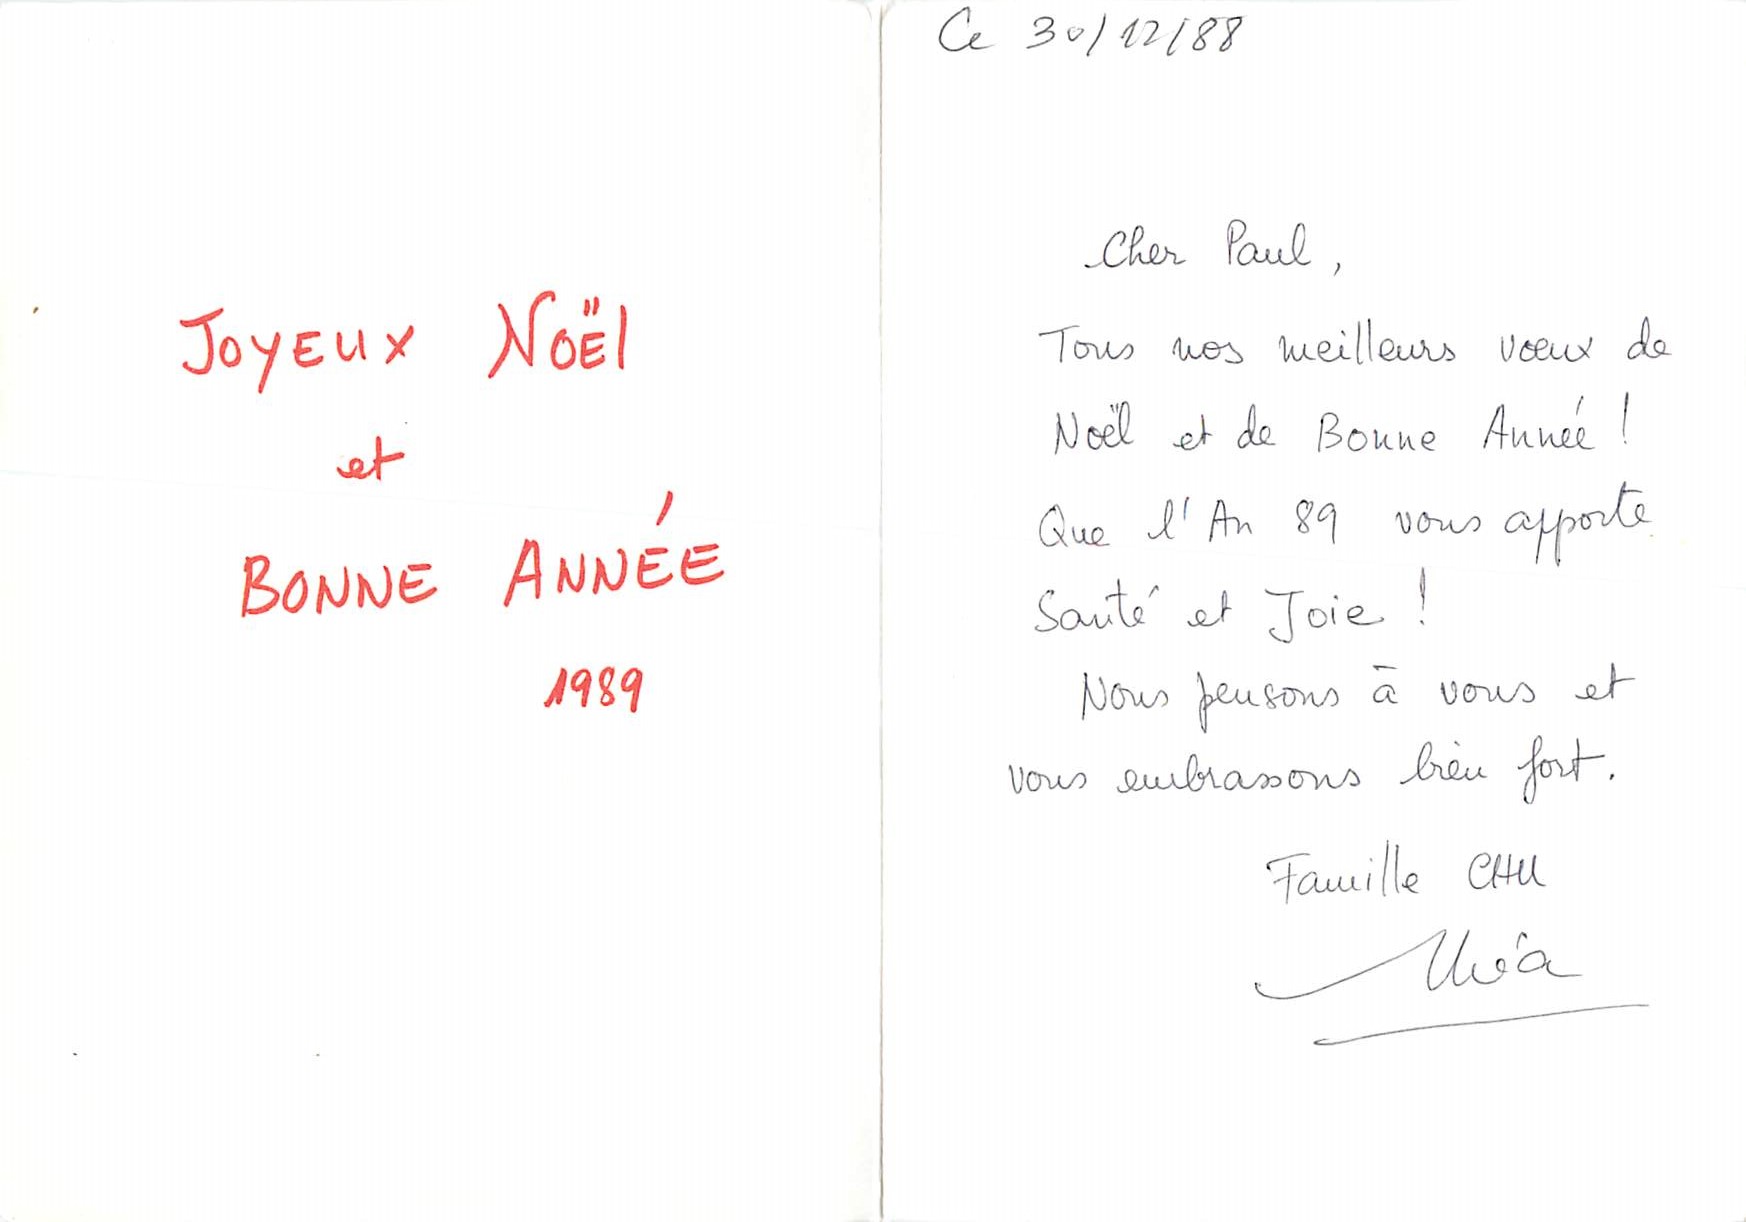 JOYEUX NOËL
et
BONNE ANNÉE
1989
Ce 30/12/88
Cher Paul,
Tous nos meilleurs vœux de
Noël et de Bonne Année !
Que l'An 89 vous apporte
Santé et Joie !
Nous pensons à vous et
vous embrassons bien fort.
Famille CHU